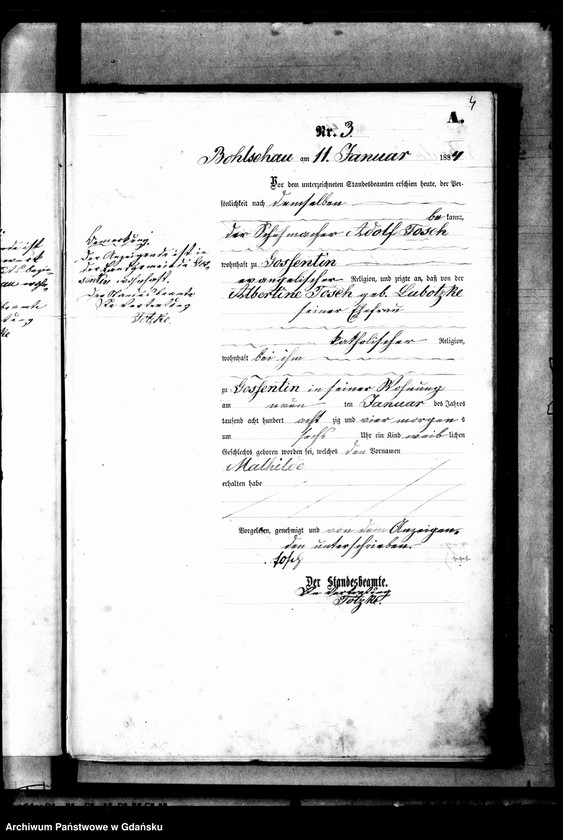 4
A.
Nr. 3.
Bohlschau am 11. Januar 1884
Vor dem unterzeichneten Standesbeamten erschien heute, der Per-
sönlichkeit nach demselben
bekannt,
der Schuhmacher Adolf Tosch
wohnhaft zu Gossentin
evangelischer Religion, und zeigte an, daß von der
Albertine Tosch geb. Labotzke
seiner Ehefrau
katholischer Religion,
wohnhaft bei ihm
zu Gossentin in seiner Wohnung
am neun ten Januar des Jahres
tausend acht hundert acht zig und vier morgens
um sechs Uhr ein Kind weib lichen
Geschlechts geboren worden sei, welches den Vornamen
Mathilde
erhalten habe
Vorgelesen, genehmigt und von dem Anzeigen-
den unterschrieben.
Tosch
Der Standesbeamte.
In Vertretung
Totzke.
Bemerkung.
Der Anzeigende ist in
der Landgemeinde Gos-
sentin wohnhaft.
Der Standesbeamte
In Vertretung
Totzke.
Archiwum Państwowe w Gdańsku